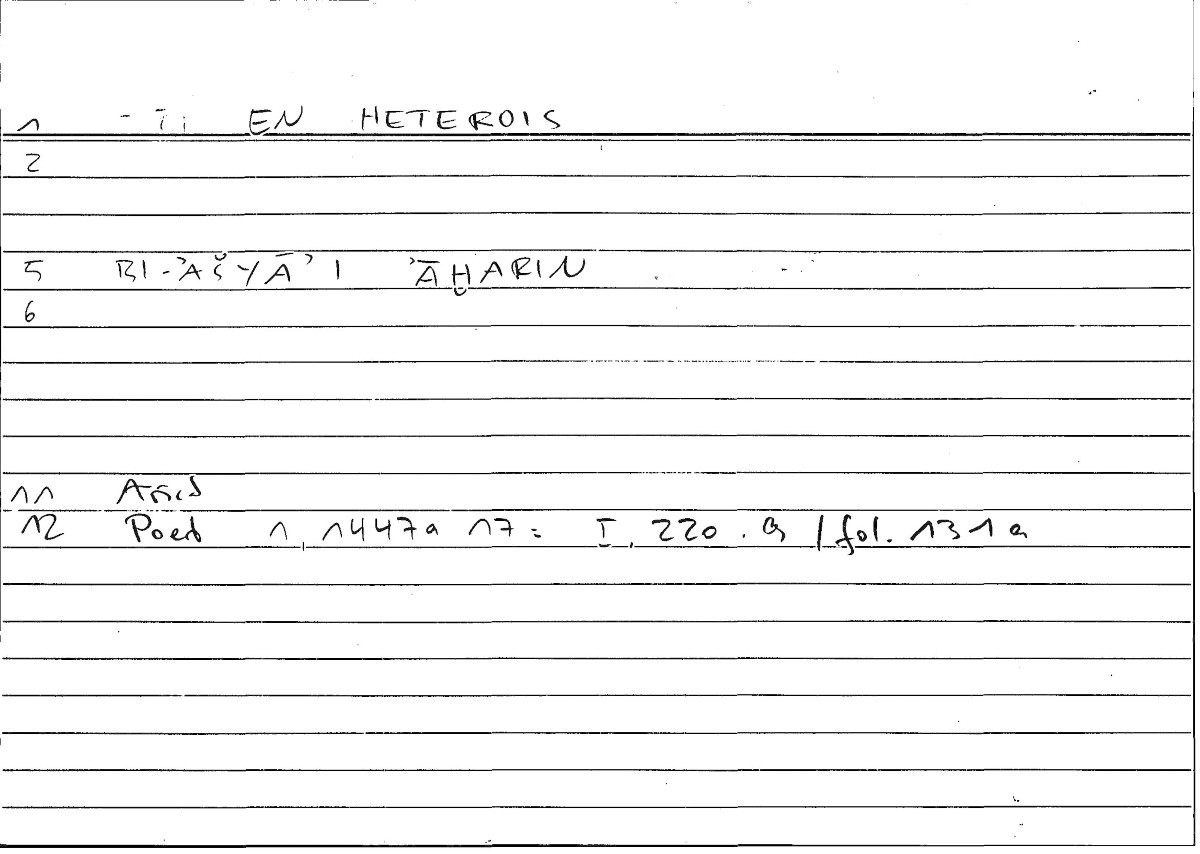 1 -TI EN HETEROIS
2
5 BI-ʾAŠYĀʾI ʾĀḪARIN
6
11 Arist
12 Poet 1, 1447a 17 = I, 220. 9 / fol. 131a